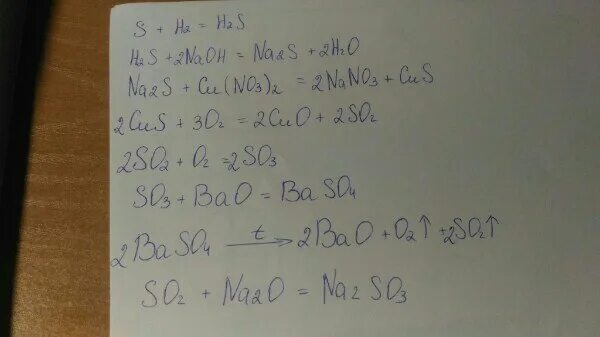 S + H2 = H2S
H2S + 2NaOH = Na2S + 2H2O
Na2S + Cu(NO3)2 = 2NaNO3 + CuS
2CuS + 3O2 = 2CuO + 2SO2
2SO2 + O2 = 2SO3
SO3 + BaO = BaSO4
2BaSO4 t→ 2BaO + O2↑ + 2SO2↑
SO2 + Na2O = Na2SO3